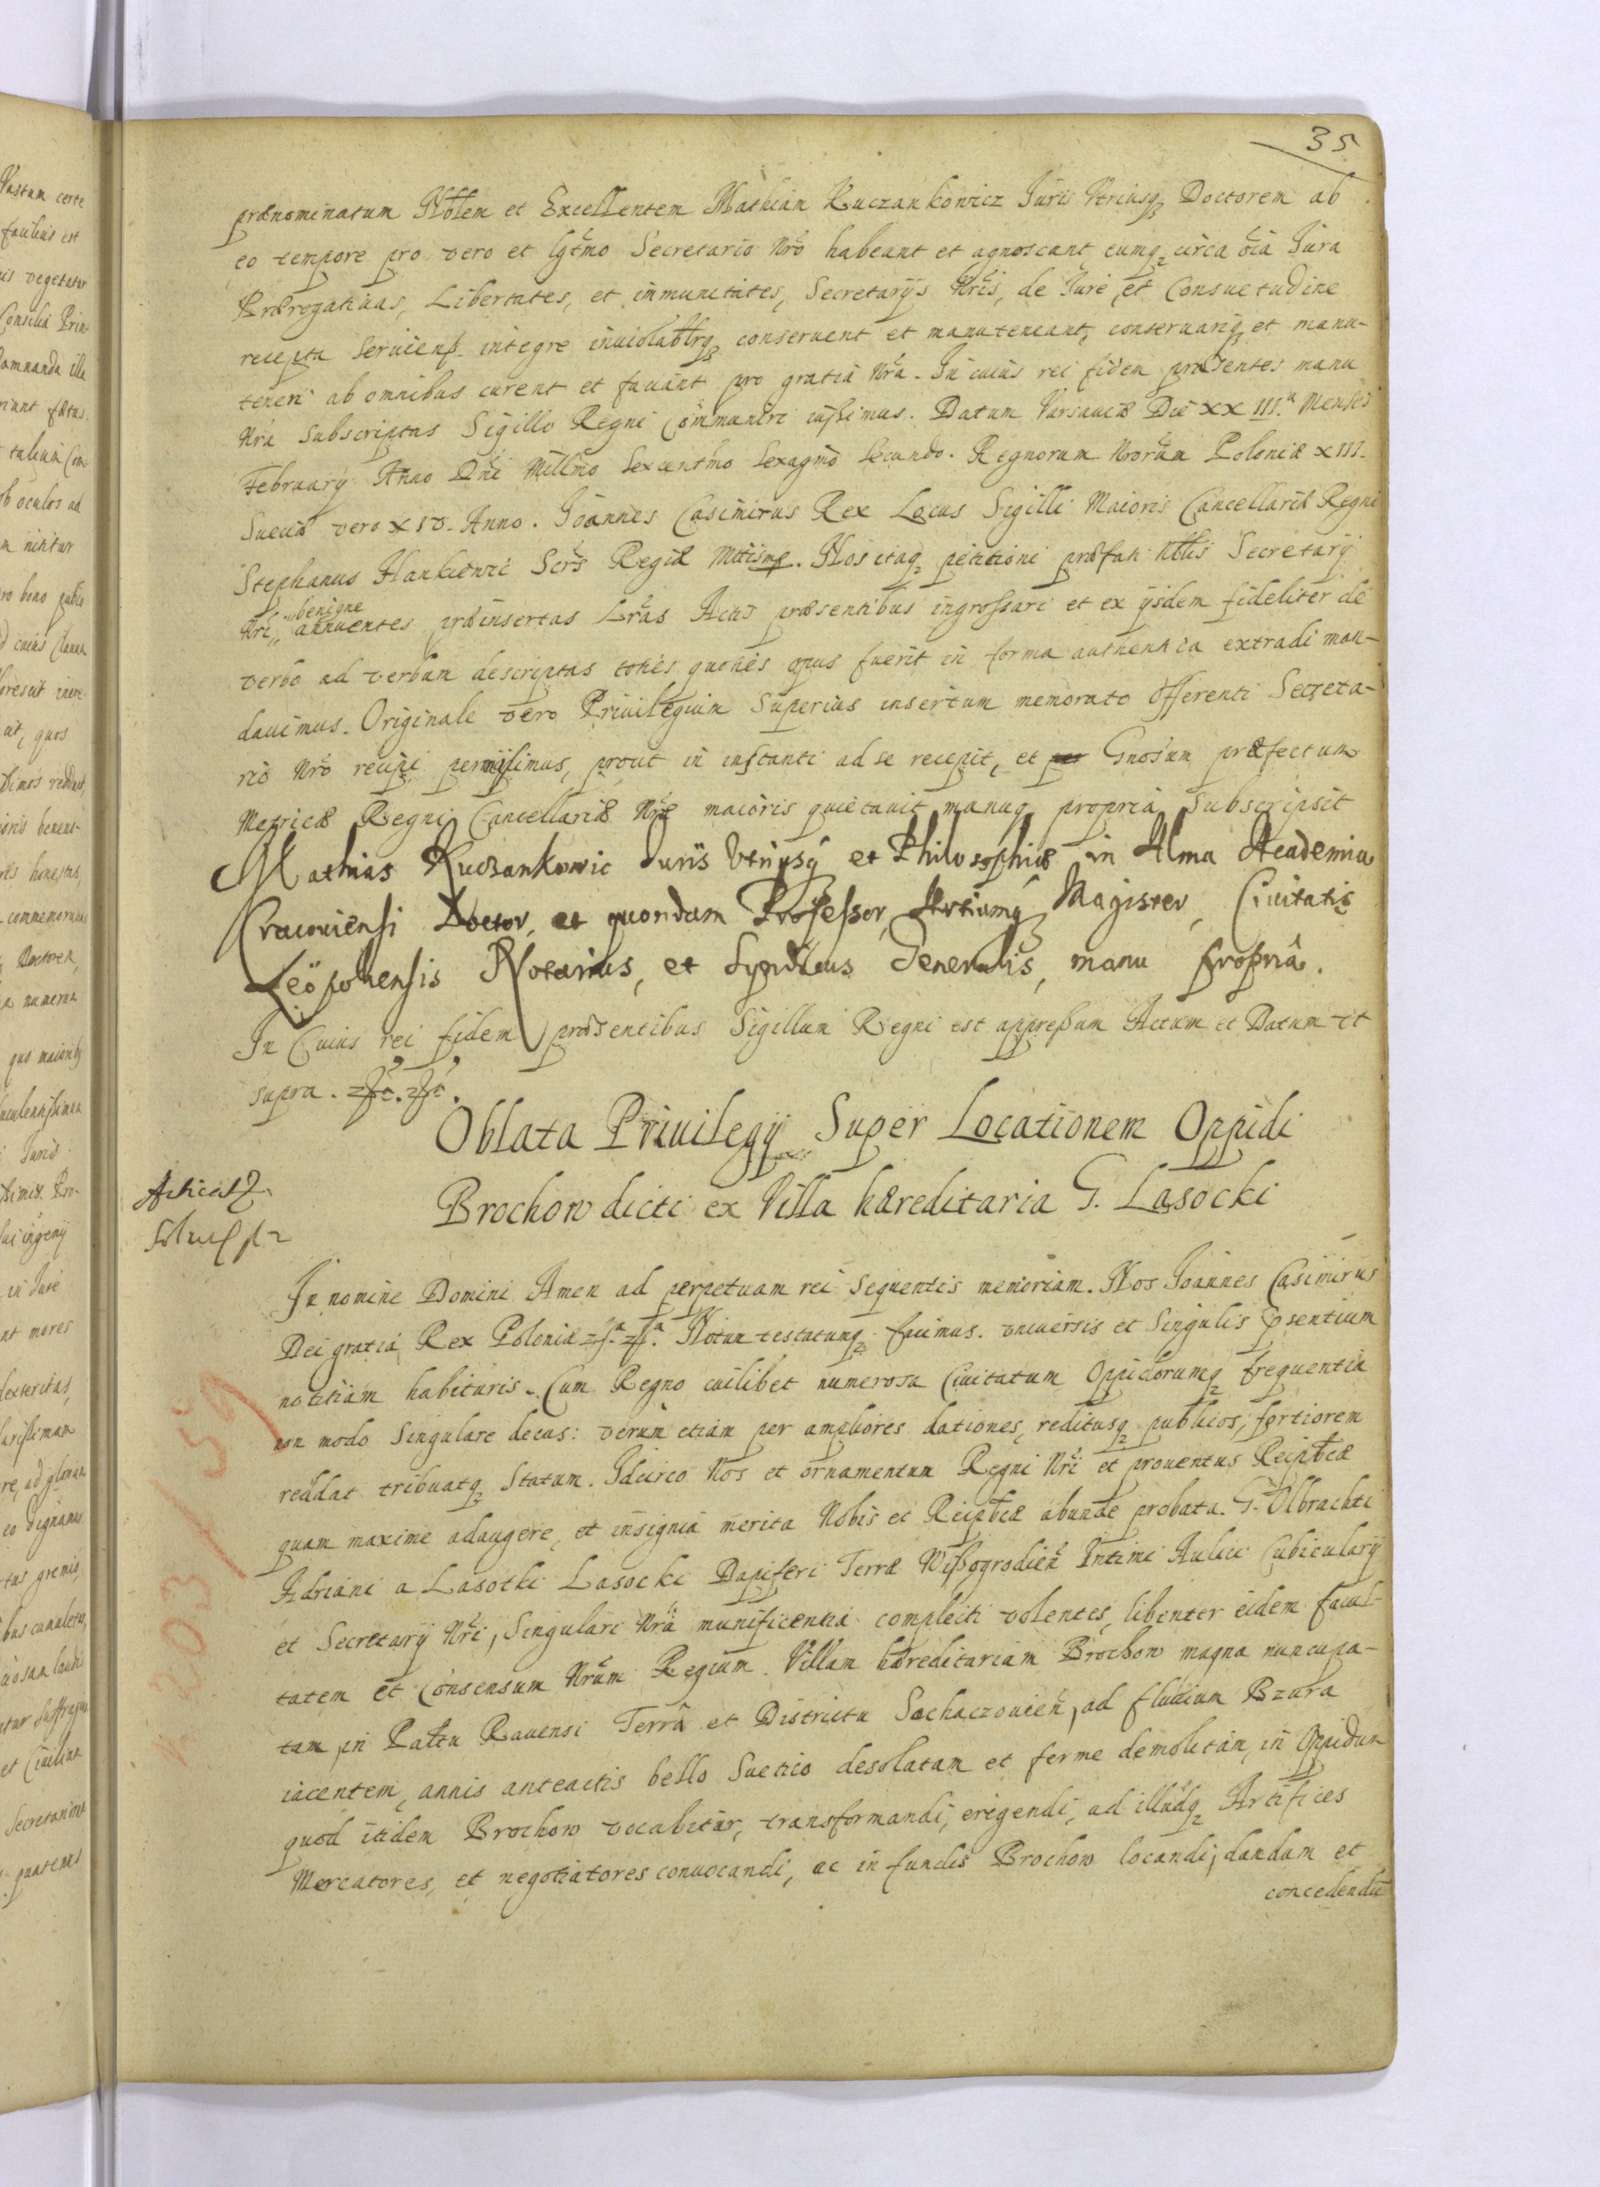 35
prænominatum Nobĺem et Excellentem Mathiam Kuczankowicz Juris Vtriusq₃ Doctorem ab
eo tempore pro vero et lgt̃mo Secretario Nrõ habeant et agnoscant, eumq₂ circa oĩa Jura
Prærogatiuas, Libertates, et immunitates, Secretarijs Nrĩs, de Jure, et Consuetudine
recepta seruien. integre inuiolablrq₃ conseruent et manuteneant, conseruariq₃ et manu-
teneri ab omnibus curent et faciant pro gratia Nrã. In cuius rei fidem præsentes manu
Nrã subscriptas Sigillo Regni Communiri iussimus. Datum Varsauiæ Die XXIII.ᵃ Mensis
February Anno Dñi Millmo Sexcentmo Sexagmo Secundo. Regnorum Nrorum Poloniæ XIII.
Sueciæ vero XIV. Anno. Joannes Casimirus Rex Locus Sigilli Maioris Cancellariæ Regni
Stephanus Hankiewic Scrs Regiæ Mttis mp. Nos itaq₂ petitioni præfati Nblis Secretarij
Nrĩ, benigne annuentes præinsertas Lrãs Actis præsentibus ingrossari et ex ijsdem fideliter de
verbo ad verbum descriptas toties quoties opus fuerit in forma authentica extradi man-
dauimus. Originale vero Priuilegium superius insertum memorato Offerenti Secreta-
rio Nrõ recipi permisimus, prout in instanti ad se recepit, et Gnosum præfectum
Metricæ Regni Cancellariæ Nræ maioris quietauit manuq₂ propria Subscripsit
Mathias Kuczankowic Juris Vtriusq́ et Philosophiæ in Alma Academia
Cracouiensi Doctor, et quondam Professor, Artiumq́ Magister, Ciuitatis
Leopoliensis Notarius, et Syndicus Generalis, manu propriâ.
In Cuius rei fidem præsentibus Sigillum Regni est appressum Actum et Datum vt
supra.
Oblata Priuilegij Super Locationem Oppidi
Brochow dicti ex Villa hæreditaria G. Lasocki
In nomine Domini Amen ad perpetuam rei sequentis memoriam. Nos Joannes Casimirus
Dei gratiâ Rex Poloniæ Notum testatumq₂ facimus. vniuersis et Singulis pñsentium
notitiam habituris. Cum Regno cuilibet numerosa Ciuitatum Oppidorumq₂ frequentia
non modo singulare decus: verùm etiam per ampliores dationes, reditusq₂ publicos, fortiorem
reddat tribuatq₂ Statum. Idcirco Nos et ornamentum Regni Nrĩ et prouentus Reipbcæ
quam maxime adaugere, et insignia merita Nobis et Reipbcæ abunde probata. G. Olbrachti
Adriani a Lasotki Lasocki Dapiferi Terræ Wissogrodien̄ Intimi Aulici Cubicularij
et Secretarij Nrĩ, Singulari Nrã munificentia complecti volentes, libenter eidem facul-
tatem et Consensum Nrũm Regium. Villam hæreditariam Brochow magna nuncupa-
tam, in Paltu Rauensi Terrâ et Districtu Sochaczouien̄, ad fluuium Bzura
iacentem, annis anteactis bello Suetico desolatam et ferme demolitam, in Oppidum
quod itidem Brochow vocabitur, transformandi, erigendi, ad illudq₂ Artifices
Mercatores, et negotiatores conuocandi, ac in fundis Brochow locandi, dandam et
concedendã